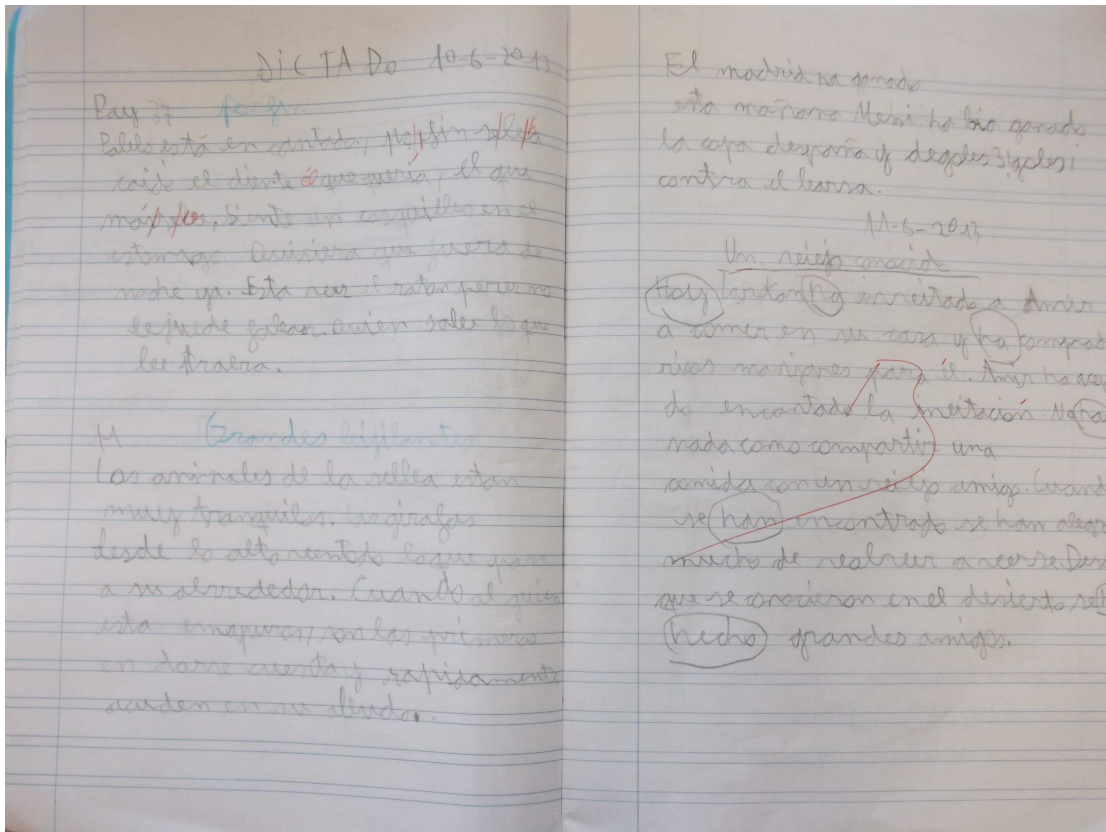 DICTADO 10-6-2013
Pay 37 por fin
Pablo está en cantado, por fin se le ha
caido el diente el que quería, el que
más, Siente un cosquilleo en el
estomago. Quisiera que fuera de
noche ya. Esta vez el raton perez no
le puede fallar. Quien sabe lo que
lee traera.
11 Grandes bijilantes
Los animales de la sellva estan
muy tranquilos. Las girafas
desde lo alto ven todo lo que pasa
a su alrrededor. Cuando al guien
esta enapuros, son las primeras
en darse cuenta y rapidamente
acuden en su alluda.
El madrid ha ganado
esta mañana Messi ha ganado
la copa despaña y de goles 3 goles
contra el barsa.
11-6-2013
Un viejo conocido
Hoy ha invitado a Amir
a comer en su casa y ha comprad
ricos manjares para él. Amir ha ace
do encantado la invitación No ha
nada como compartir una
comida con un viejo amigo. Cuand
se han encontrado se han alegr
mucho de volver a verse. Des
que se conocieron en el desierto se h
hecho grandes amigos.